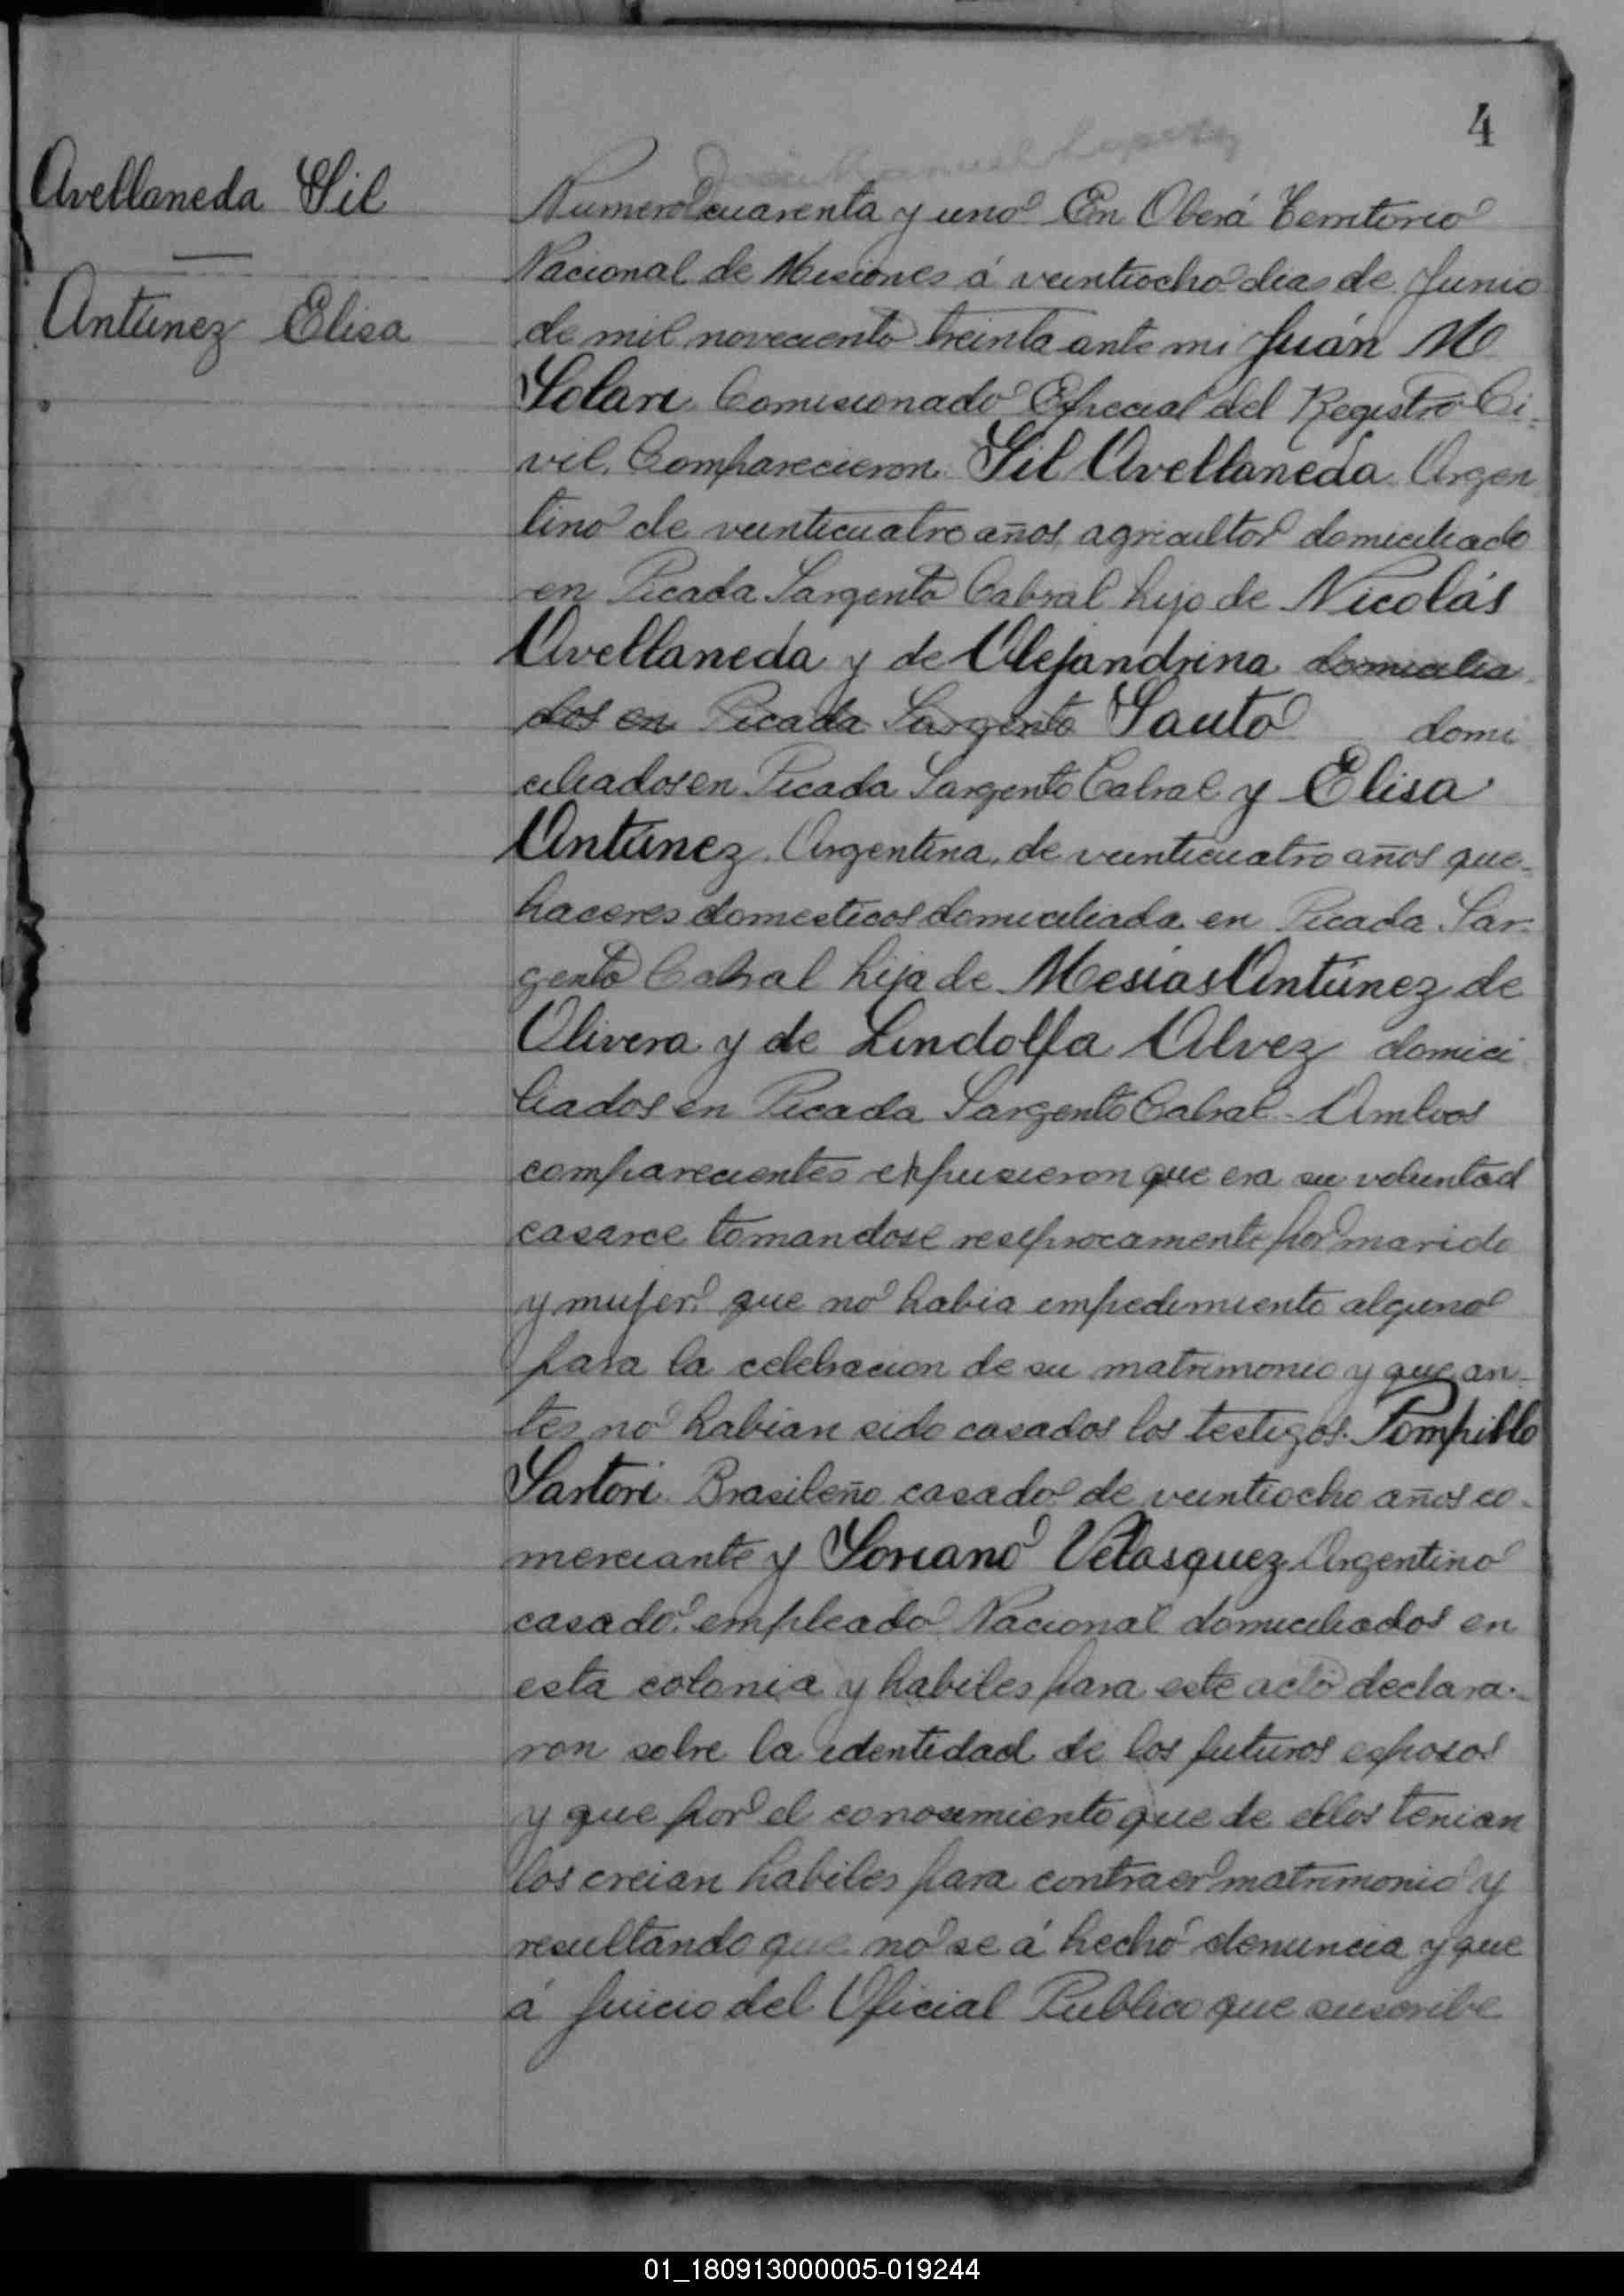 4
Avellaneda Gil
Antúnez Elisa
Numero cuarenta y uno En Oberá Territorio
Nacional de Misiones á veintiocho dias de Junio
de mil noveciento treinta ante mi Juán M
Solari Comisionado Especial del Registro Ci-
vil. Comparecieron Gil Avellaneda Argen
tino de veinticuatro años, agricultor domiciliado
en Picada Sargento Cabral hijo de Nicolás
Avellaneda y de Alejandrina domicilia
dos en Picada Sargento Sauto domi
ciliados en Picada Sargento Cabral y Elisa
Antúnez. Argentina, de veinticuatro años que-
haceres domesticos domiciliada en Picada Sar-
gento Cabral hija de Mesías Antúnez de
Olivera y de Lindolfa Alvez domici
liados en Picada Sargento Cabral. Ambos
comparecientes expusieron que era su voluntad
casarce tomandose resiprocamente por marido
y mujer que no habia impedimiento alguno
para la celebracion de su matrimonio y que an-
tes no habian sido casados los testigos. Pompillo
Sartori Brasileño casado de veintiocho años co-
merciante y Soriano Velasquez Argentino
casado. empleado Nacional domiciliados en
esta colonia y habiles para este acto declara-
ron sobre la identidad de los futuros esposos
y que por el conosimiento que de ellos tenian
los creian habiles para contraer matrimonio y
resultando que no se á hecho denuncia y que
á juicio del Oficial Publico que suscribe
01_180913000005-019244